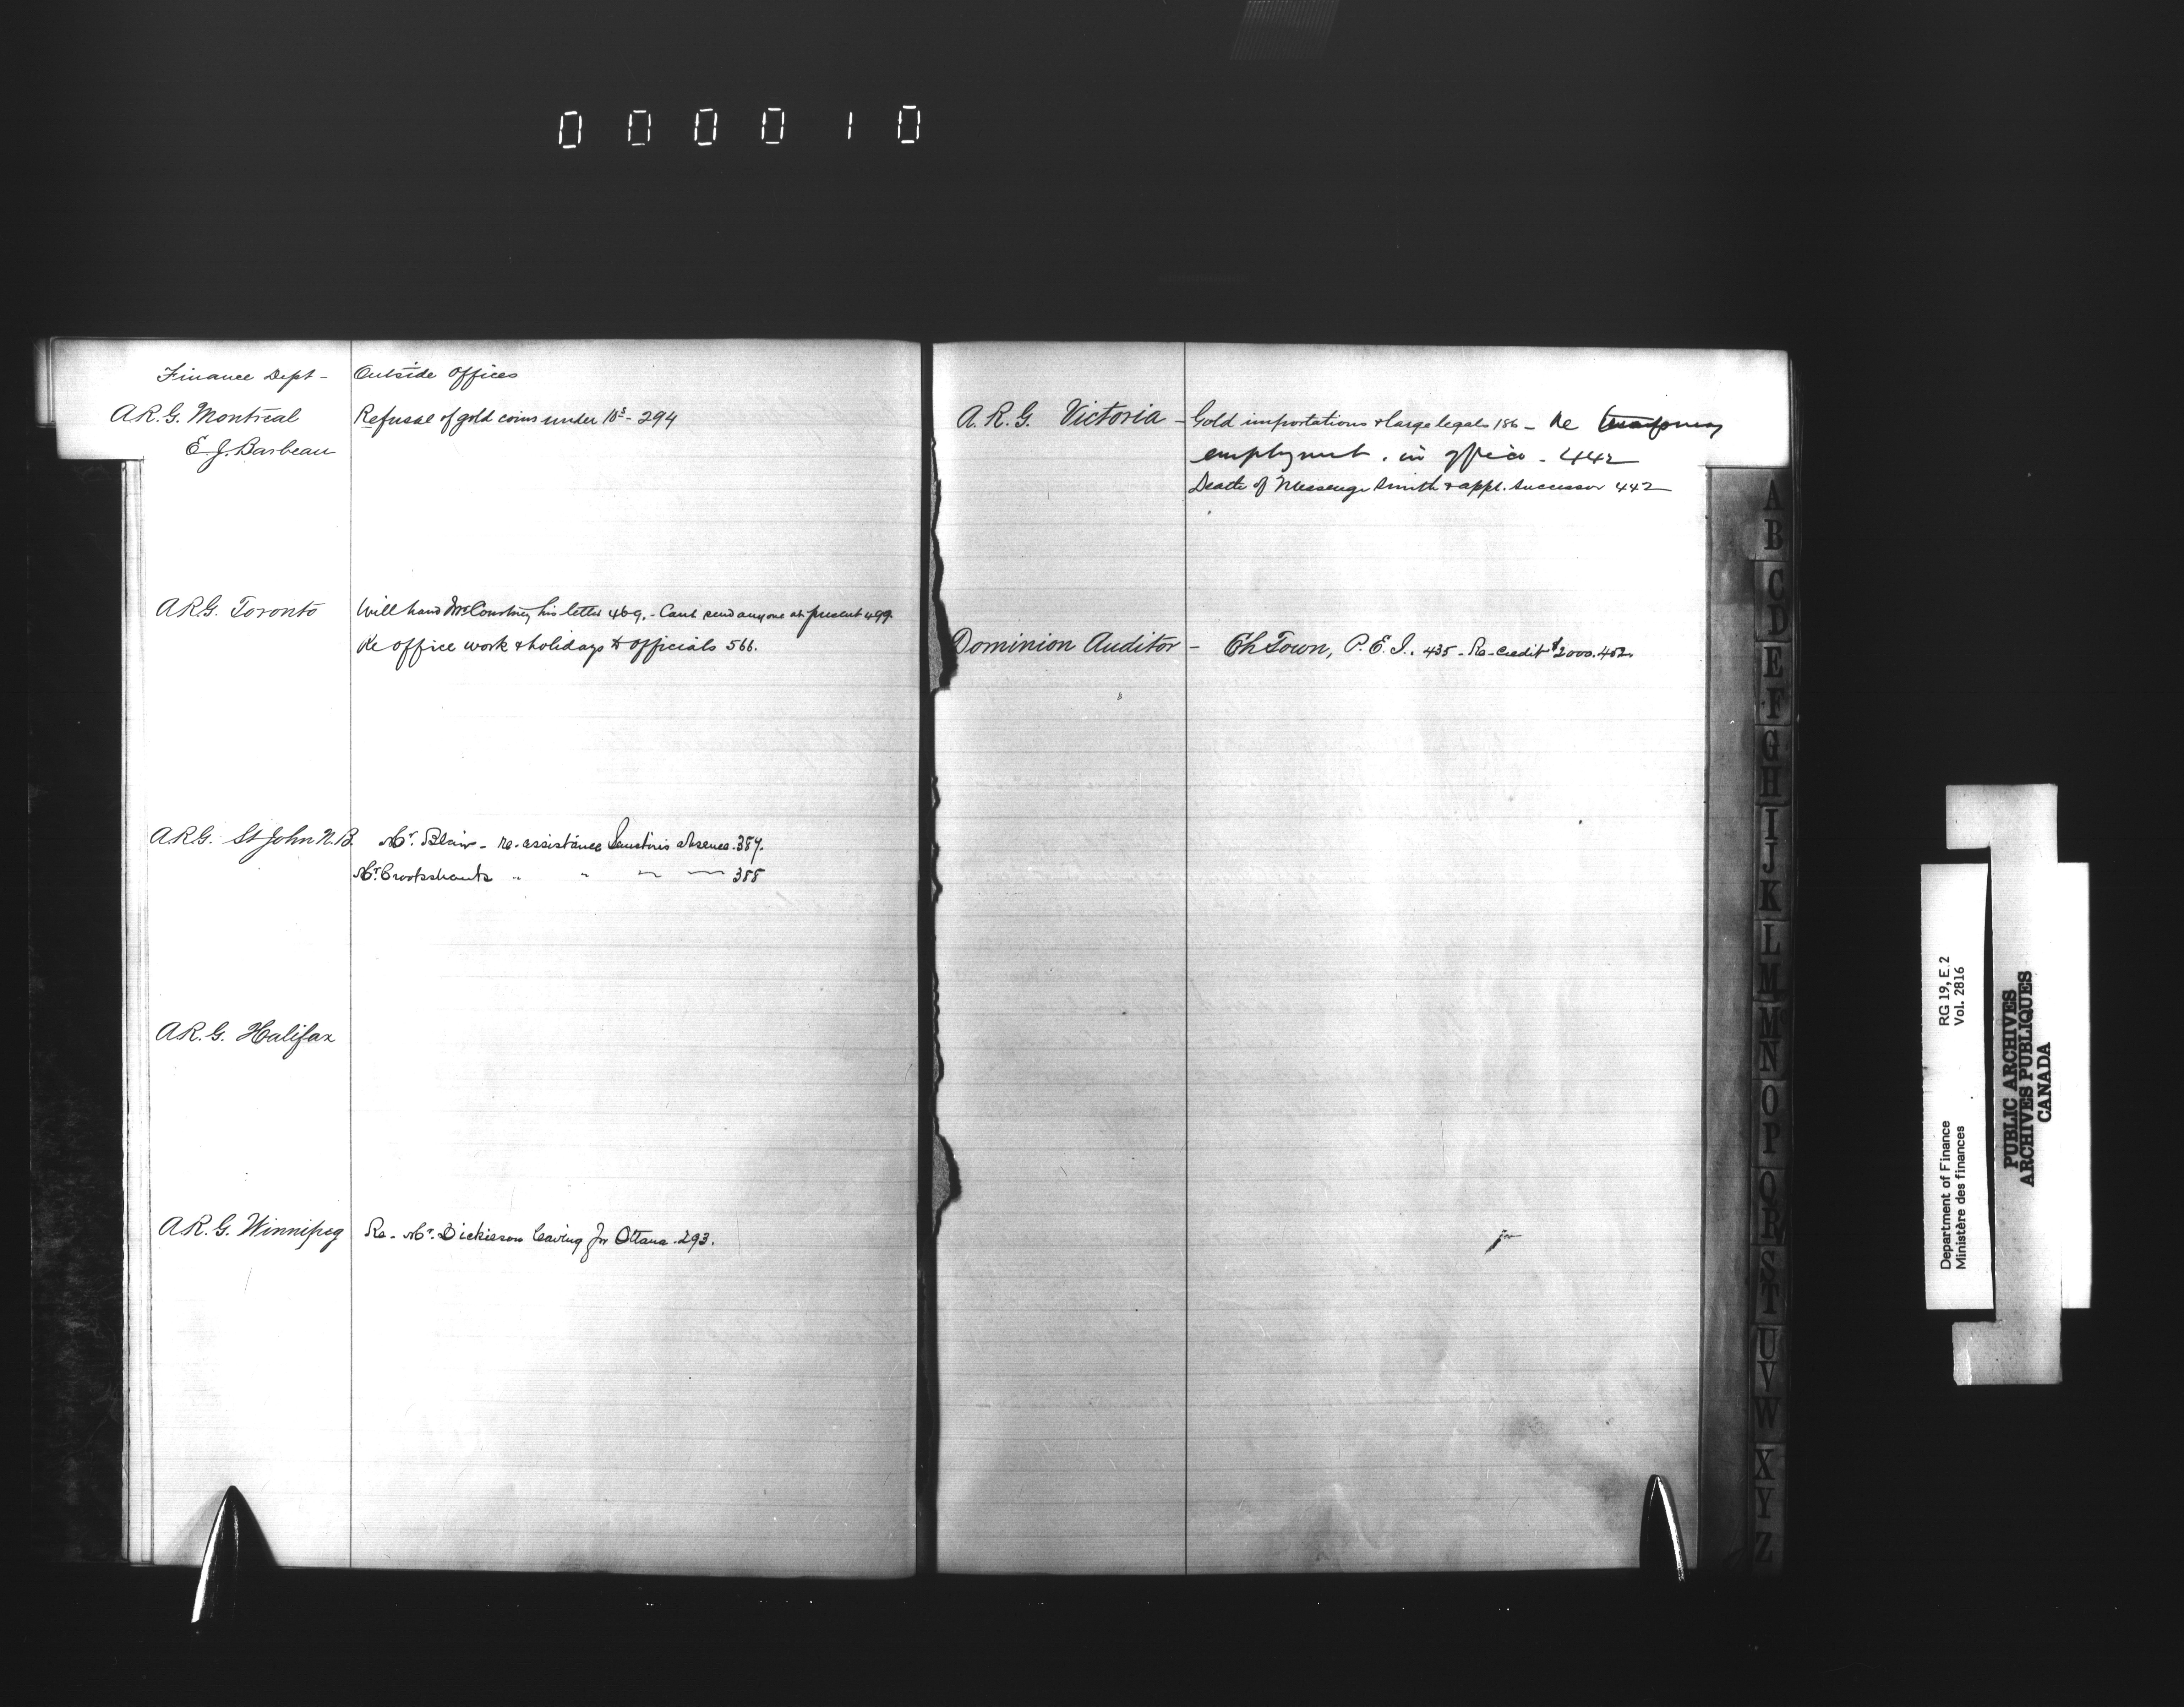 000010
Finance Dept - Outside Offices
A.R.G. Montreal Refusal of gold coins under 10s - 294
E.J. Barbeau
A.R.G. Toronto Will hand Mr Courtney his letter 469. - Cant send anyone at present 499.
Re office work & holidays to officials 566.
A.R.G. St John N.B. Mr. Blair - re-assistance absence. 387.
Mr. Crookshank " " " " 388
A.R.G. Halifax
A.R.G. Winnipeg Re- Mr. Dickieson leaving for Ottawa. 293.
A.R.G. Victoria - Gold importations & large legals 186 - Re
employment. in office - 442
Death of Messenger Smith & appt. successor 442
Dominion Auditor - ChTown, P.E.I. 435 - Re-credit $2000. 452.
for
A
B
C
D
E
F
G
H
I
J
K
L
M
M
N
O
P
Q
R
S
T
U
V
W
X
Y
Z
RG 19, E.2
Vol. 2816
Department of Finance
Ministère des finances
PUBLIC ARCHIVES
ARCHIVES PUBLIQUES
CANADA